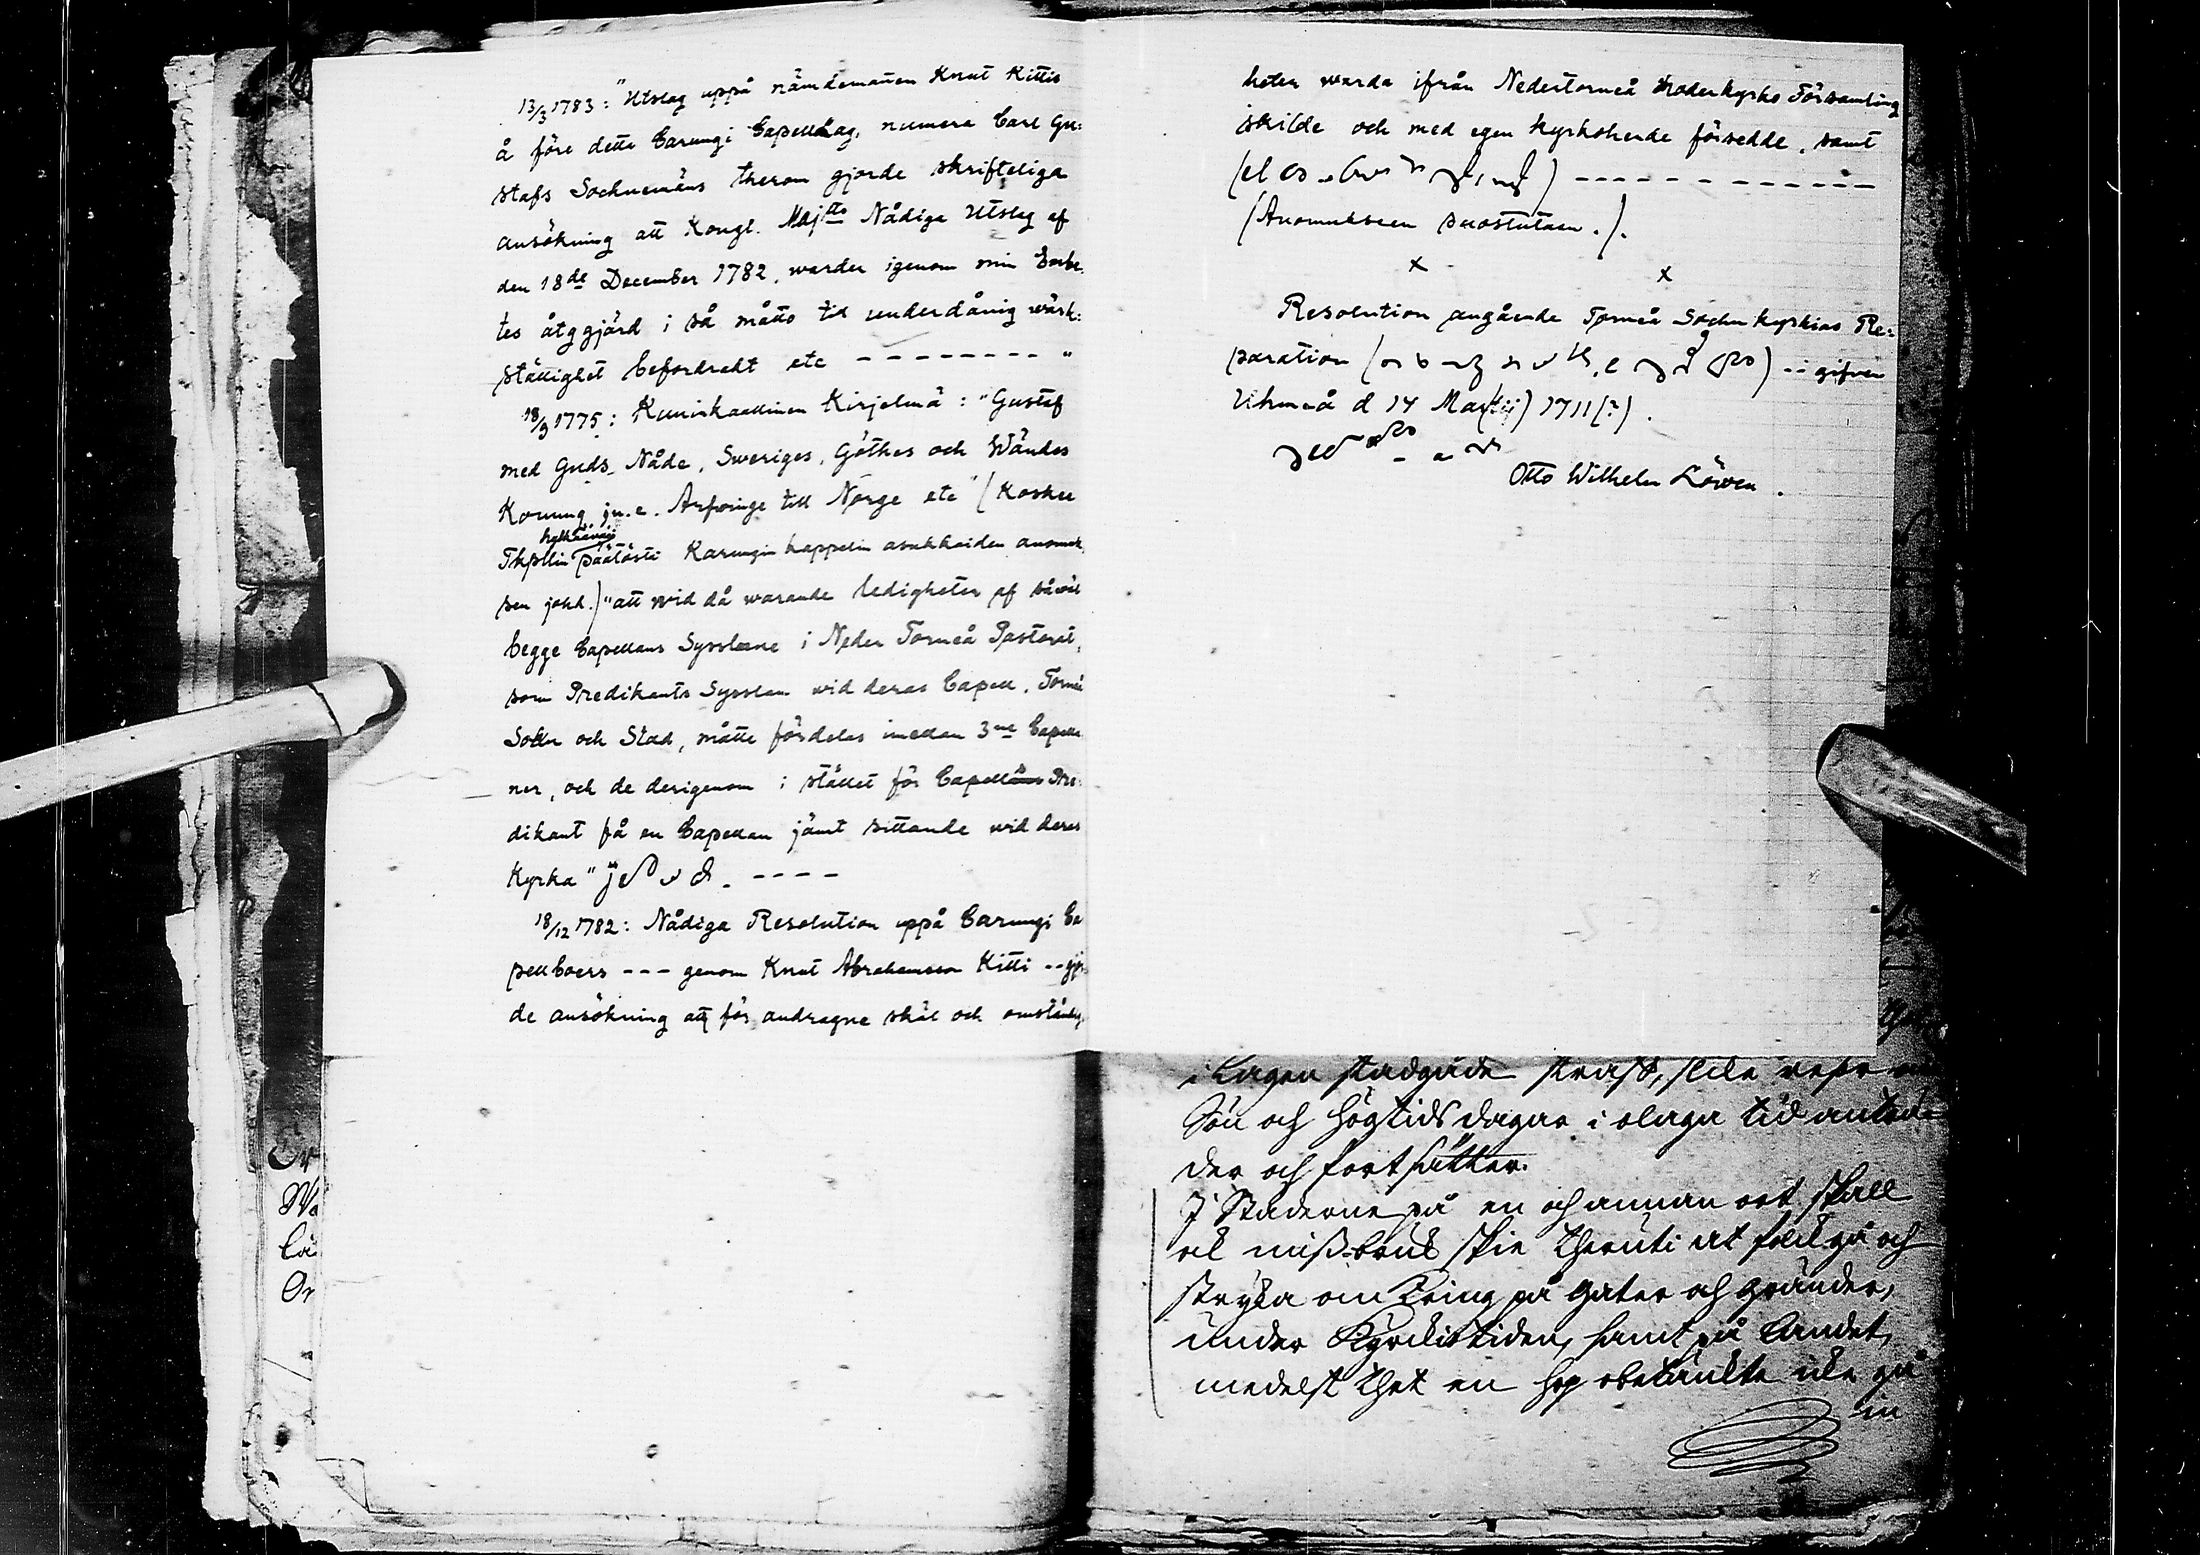 13/3 1783: "Utslag uppå nämdemañen Knut Kittis
å före detta Carungi Capell Lag, numera Carl Gu:
stafs Sochnemäns therom gjorde skrifteliga
ansökning att Kongl. Maj:ts Nådiga Utslag af
den 18de December 1782, warder igenom min Embe:
tes åtggjärd i så måtto til underdånig wärk:
ställighet befordradt etc - - - - - - - - "
18/9 1775: Kuninkaallinen Kirjelmä: "Gustaf
med Guds Nåde, Sweriges, Göthes och Wändes
Konung jn.e. Arfwinge till Norge etc" (Koskee
hylkäävää
Tkpllin päätöstä Karungin kappelin asukkaiden anomuk
sen johd.) "att wid då warande ledigheter af såwäl
begge Capellans Sysslorne i Neder Torneå Pastorat,
som Predikants Sysslan wid deras Capell, Torneå
Sokn och Stad, måtte fördelas imellan 3ne Capella
ner, och de derigenom i stället för Capellans Pre:
dikant få en Capellan jämt sittande wid deras
Kyrka" - - - -
18/12 1782: Nådiga Resolution uppå Carungi Ca
pellboers - - - genom Knut Abrahamsson Kitti - - gjor
de ansökning att för andragne skäl och omständig
heter warda ifrån Nedertorneå Moderkyrko Församling
skilde och med egen kyrkoherde försedde, samt
- - - - - - - - - - - - -
(Anomukseen suostutaan.).
x x
Resolution angående Torneå Sochn kyrkias Re:
paration - - gifven
Uhmeå d 14 Mar(tij) 1711(?).
Otto Wilhelm Löwen.
i Lagen stadgade straff, slike
Sön och Högtids dagar i olaga tid
der och fortsätter.
I Städerne på en och annan ort skall
ok miss-bruk skie theruti at folck gå och
stryka om kring på gator och gränder,
under Kyrckiotiden, samt på Landet,
medelst thet en hop obetänkte icke gå
in